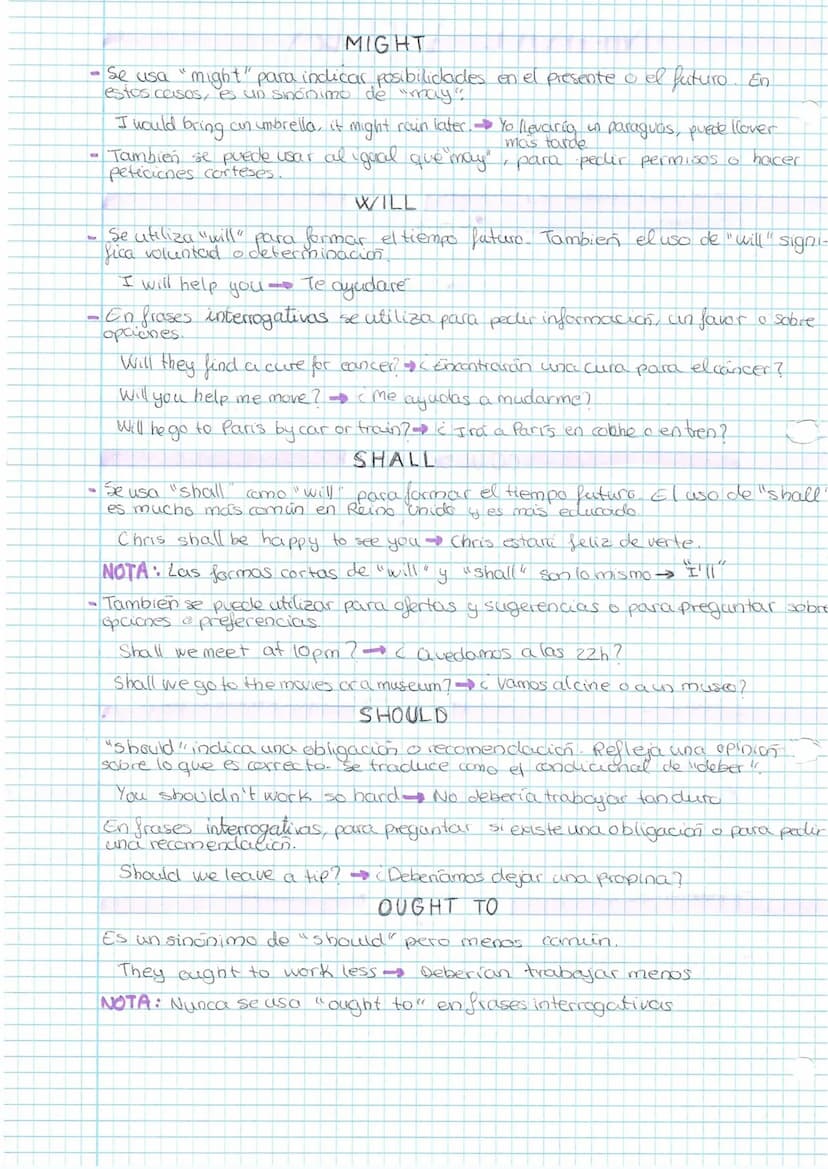 MIGHT
- Se usa "might" para indicar posibilidades en el presente o el futuro. En
estos casos, es un sinónimo de "may".
I would bring an umbrella, it might rain later. → Yo llevaría un paraguas, puede llover
más tarde
- También se puede usar al igual que "may", para pedir permisos o hacer
peticiones corteses.
WILL
- Se utiliza "will" para formar el tiempo futuro. También el uso de "will" signi-
fica voluntad o determinación.
I will help you → Te ayudaré
- En frases interrogativas se utiliza para pedir información, un favor o sobre
opciones.
Will they find a cure for cancer? → ¿Encontrarán una cura para el cáncer?
Will you help me move? → ¿Me ayudas a mudarme?
Will he go to Paris by car or train? → ¿Irá a París en coche o en tren?
SHALL
- Se usa "shall" como "will" para formar el tiempo futuro. El uso de "shall"
es mucho más común en Reino Unido y es más educado
Chris shall be happy to see you → Chris estará feliz de verte.
NOTA: Las formas cortas de "will" y "shall" son lo mismo → "I'll"
- También se puede utilizar para ofertas y sugerencias o para preguntar sobre
opciones o preferencias.
Shall we meet at 10pm? → ¿Quedamos a las 22h?
Shall we go to the movies or a museum? → ¿Vamos al cine o a un museo?
SHOULD
"Should" indica una obligación o recomendación. Refleja una opinión
sobre lo que es correcto. Se traduce como el condicional de "deber".
You shouldn't work so hard → No debería trabajar tan duro
En frases interrogativas, para preguntar si existe una obligación o para pedir
una recomendación.
Should we leave a tip? → ¿Deberíamos dejar una propina?
OUGHT TO
Es un sinónimo de "should" pero menos común.
They ought to work less → Deberían trabajar menos
NOTA: Nunca se usa "ought to" en frases interrogativas